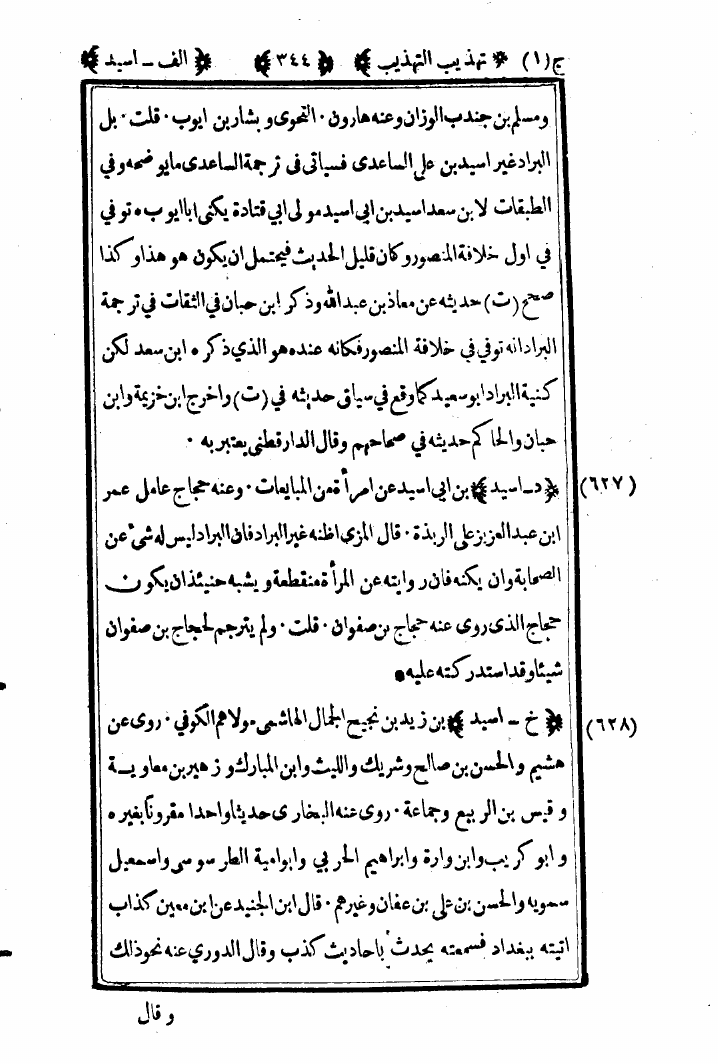 ج(١) * تهذيب التهذيب ﴾ ﴿ ٣٤٤ ﴾ ﴿ الف ـ اسيد ﴾
ومسلم بن جندب الوزان وعنه هارون٠ النحوى وبشار بن ايوب٠ قلت٠ بل
البراد غير اسيد بن على الساعدى فسياتى فى ترجمة الساعدى مايوضحه وفي
الطبقات لا بن سعد اسيد بن ابى اسيد مولى ابي قتادة يكنى ابا ايوب ه توفي
في اول خلافة المنصور وكان قليل الحديث فيحتمل ان يكون هو هذا وكذا
صحح (ت) حديثه عن معاذ بن عبد الله وذكر ابن حبان في الثقات في ترجمة
البراد انه توفي في خلافة المنصور فكانه عنده هو الذي ذكره ابن سعد لكن
كنية البراد ابو سعيد كما وقع في سياق حديثه في (ت) واخرج ابن خزيمة وابن
حبان والحاكم حديثه في صحاحهم وقال الدار قطنى يعتبر به ٠
(٦٢٧) ﴿ د ـ اسيد ﴾ بن ابي اسيد عن امرأة من المبايعات٠ وعنه حجاج عامل عمر
ابن عبد العزيز على الربذة٠ قال المزى اظنه غير البراد فان البراد ليس له شئ عن
الصحابة وان يكنه فان روايته عن المرأة منقطعة ويشبه حنيئذ ان يكون
حجاج الذى روى عنه حجاج بن صفوان٠ قلت٠ ولم يترجم لحجاج بن صفوان
شيئا وقد استدركته عليه٠
(٦٢٨) ﴿ خ ـ اسيد ﴾ بن زيد بن نجيح الجمال الهاشمى مولاهم الكوفي٠ روى عن
هشيم والحسن بن صالح وشريك والليث وابن المبارك وزهير بن معاوية
وقيس بن الربيع وجماعة٠ روى عنه البخارى حديثا واحدا مقروناً بغيره
وابو كريب وابن وارة وابراهيم الحربي وابوامية الطرسوسى واسمعيل
سمويه والحسن بن على بن عفان وغيرهم٠ قال ابن الجنيد عن ابن معين كذاب
اتيته ببغداد فسمعته يحدث باحاديث كذب وقال الدوري عنه نحوذلك
وقال